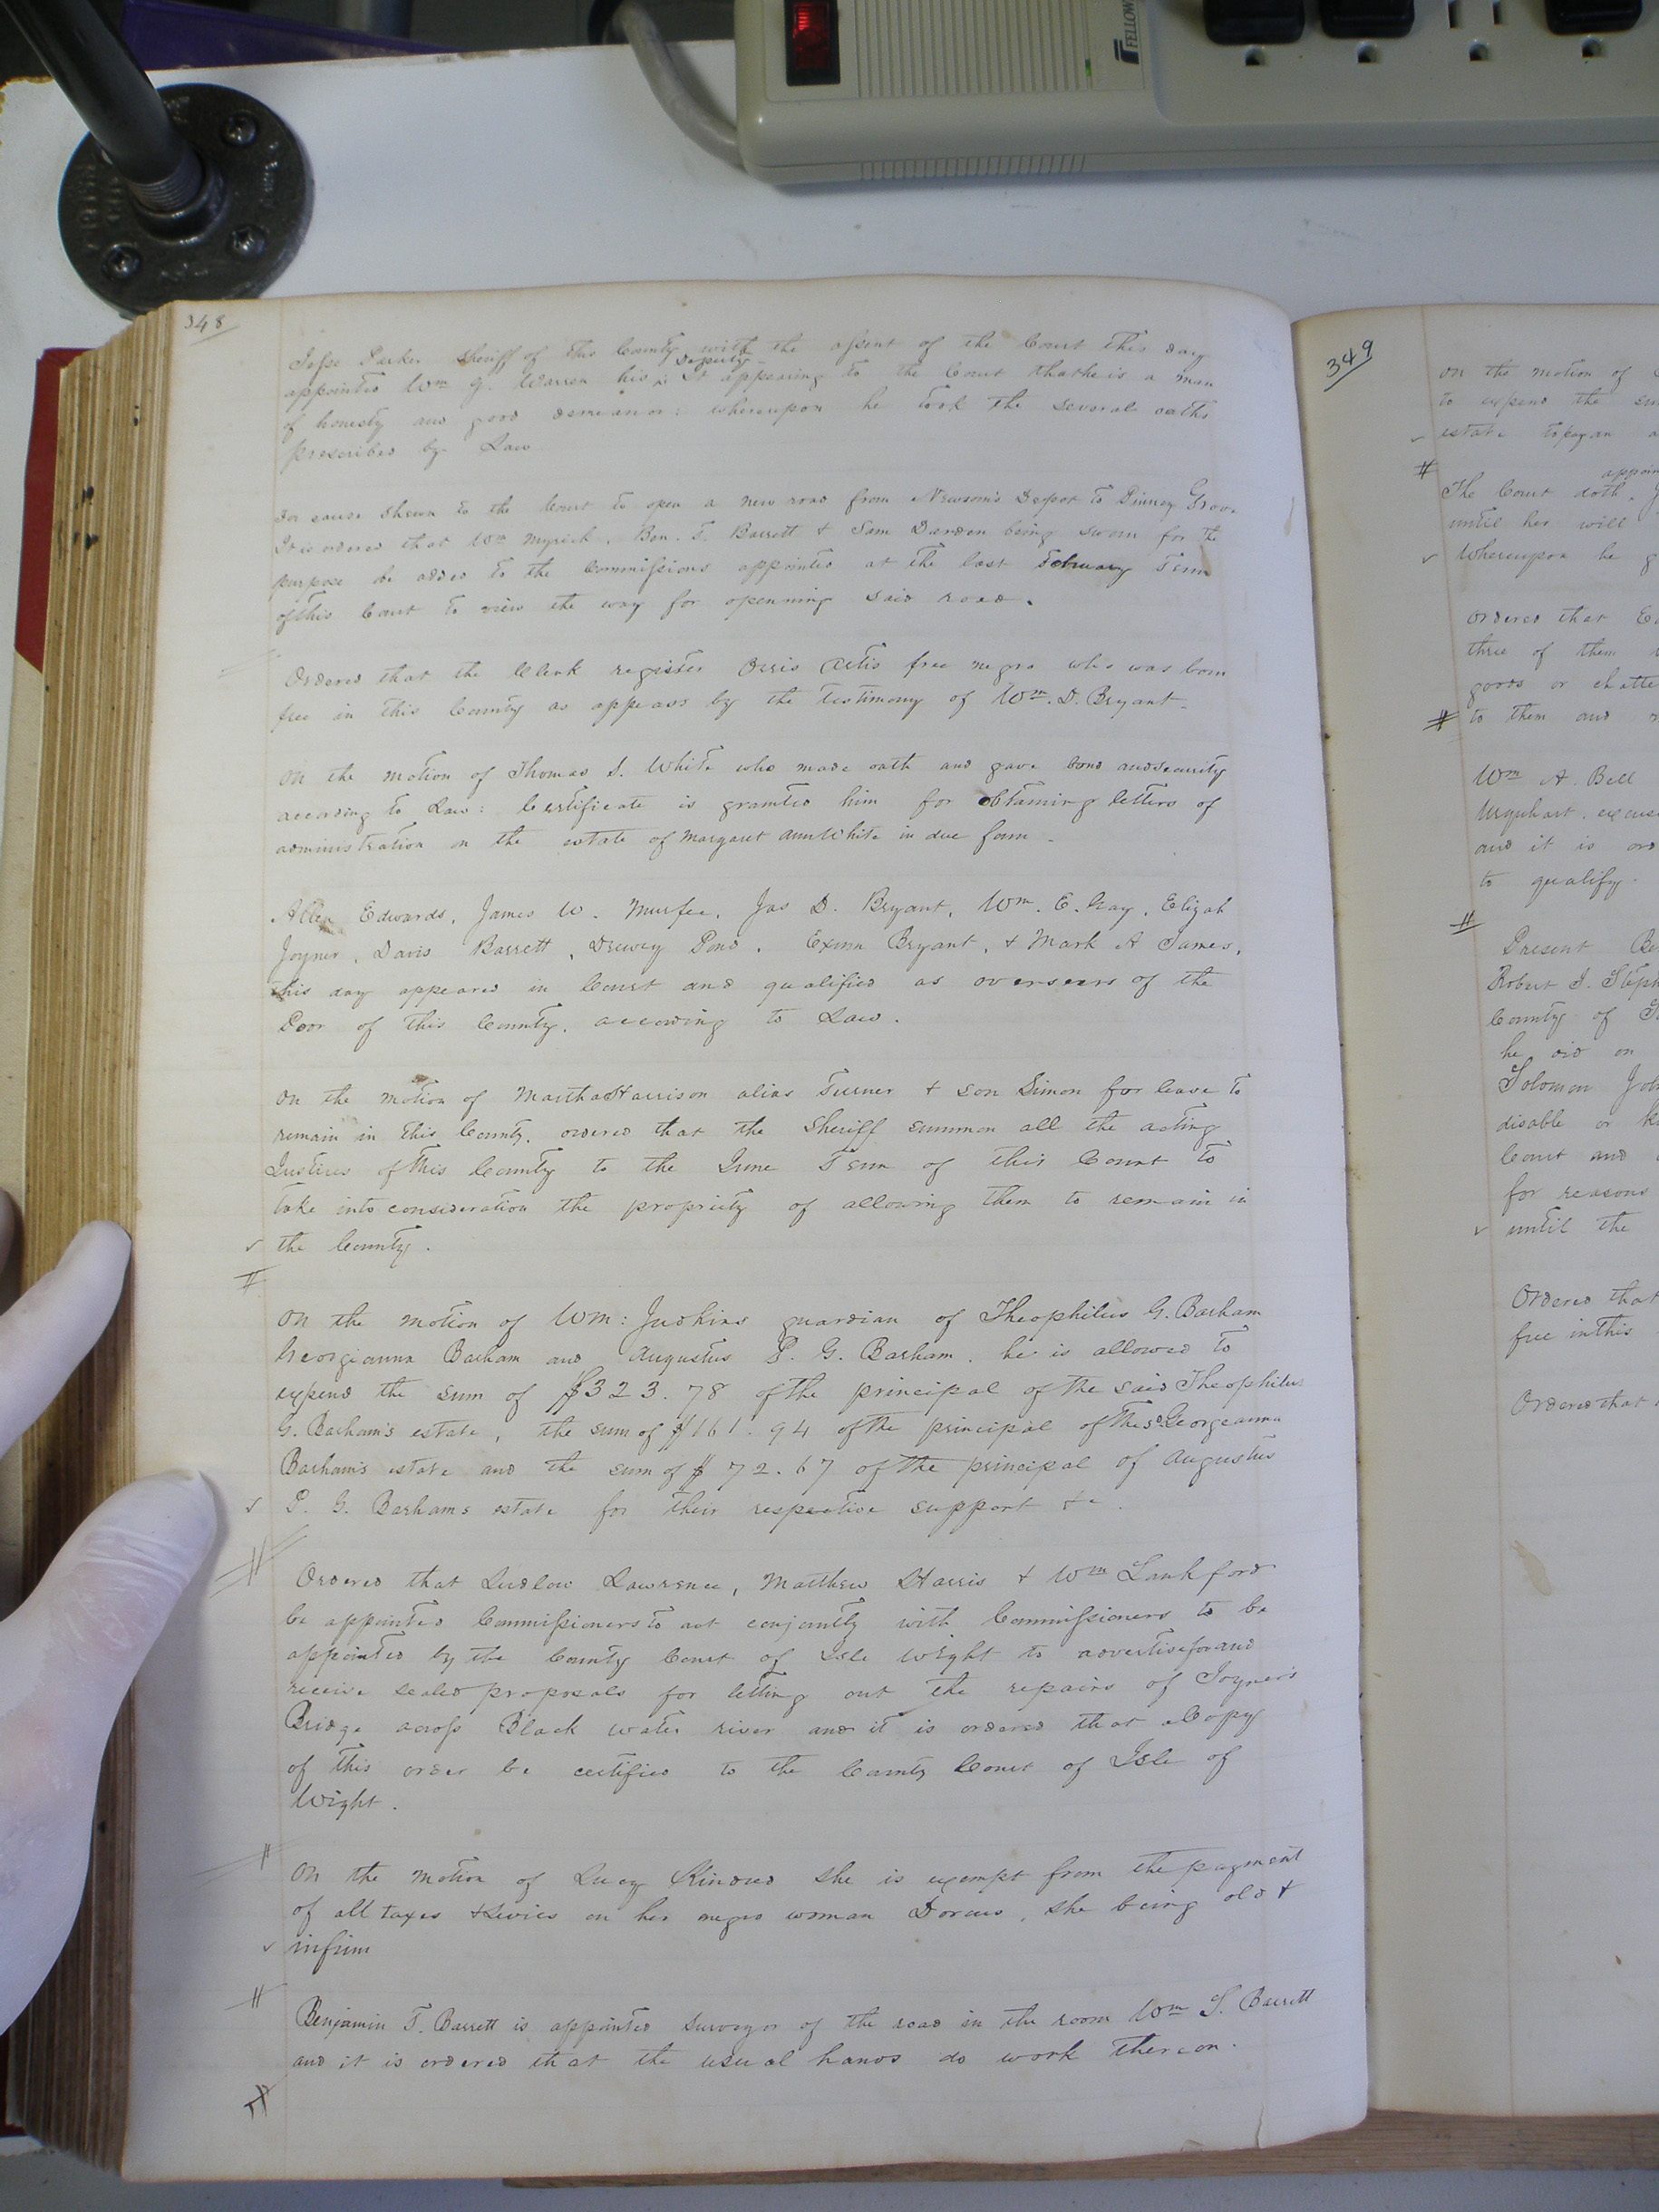 FELLOW
348
Jesse Parker Sheriff of this County with the assent of the Court this day
appointed Wm G. Warren his Deputy It appearing to the Court that he is a man
of honesty and good demeanor: whereupon he took the several oaths
prescribed by Law
For cause shewn to the Court to open a new road from Newsom's Depot to Pinney Grove
It is ordered that Wm Myrick, Ben. T. Barrett & Sam Darden being sworn for the
purpose be added to the Commissions appointed at the last February Term
of this Court to view the way for openning said road.
Ordered that the Clerk register Orris Artis free negro who was born
free in this County as appears by the testimony of Wm. D. Bryant.
On the motion of Thomas J. White who made oath and gave bond and security
according to Law: Certificate is granted him for obtaining letters of
administration on the estate of Margaret Ann White in due form
Allen Edwards, James W. Murfee, Jas D. Bryant, Wm. E. Gay, Elijah
Joyner, Davis Barrett, Drewry Pond, Exum Bryant, & Mark A James,
this day appeared in Court and qualified as overseers of the
Poor of this County, according to Law.
On the motion of Martha Harrison alias Turner & son Simon for leave to
remain in this County, ordered that the Sheriff summon all the acting
Justices of this County to the June Term of this Court to
take into consideration the propriety of allowing them to remain in
the County.
On the motion of Wm: Judkins guardian of Theophilus G. Barham
Georgianna Barham and Augustus P. G. Barham, he is allowed to
expend the sum of $323.78 of the principal of the said Theophilus
G. Barham's estate, the sum of $161.94 of the principal of the sd Georgeanna
Barham's estate and the sum of $72.67 of the principal of Augustus
P. G. Barhams estate for their respective support &c.
Ordered that Ludlow Lawrence, Matthew Harris & Wm Lankford
be appointed Commissioners to act conjointly with Commissioners to be
appointed by the County Court of Isle Wight to advertise for and
receive sealed proposals for letting out the repairs of Joyner's
Bridge across Black water river and it is ordered that a Copy
of this order be certified to the County Court of Isle of
Wight.
On the motion of Lucy Kindred she is exempt from the payment
of all taxes & Levies on her negro woman Dorcus, she being old &
infirm
Benjamin T. Barrett is appointed surveyor of the road in the room Wm T. Barrett
and it is ordered that the usual hands do work thereon.
349
On the motion of
to expend the
estate to pay an
The Court doth
until her will
Whereupon he
Ordered that
three of them
goods or chatte
to them and
Wm A. Bell
Urquhart, excuse
and it is ord
to qualify.
Present
Robert J. Steph
County of
he did on
Solomon Joh
disable or
Court and
for reasons
until the
Ordered that
free in this
Ordered that